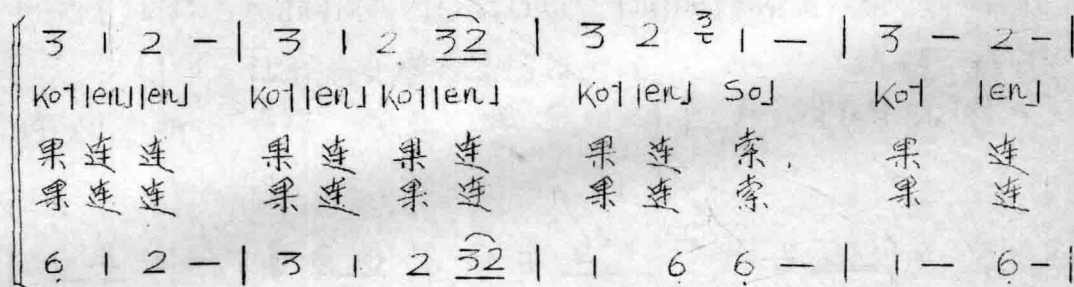 3 1 2 — | 3 1 2 32 | 3 2 3 1 — | 3 — 2 - |
ko˥ len˩ len˩ ko˥ len˩ ko˥ len˩ ko˥ len˩ so˩ ko˥ len˩
果 连 连 果 连 果 连 果 连 索 , 果 连
果 连 连 果 连 果 连 果 连 索 果 连
6̣ 1 2 — | 3 1 2 32 | 1 6̣ 6̣ — | 1 — 6̣ - |